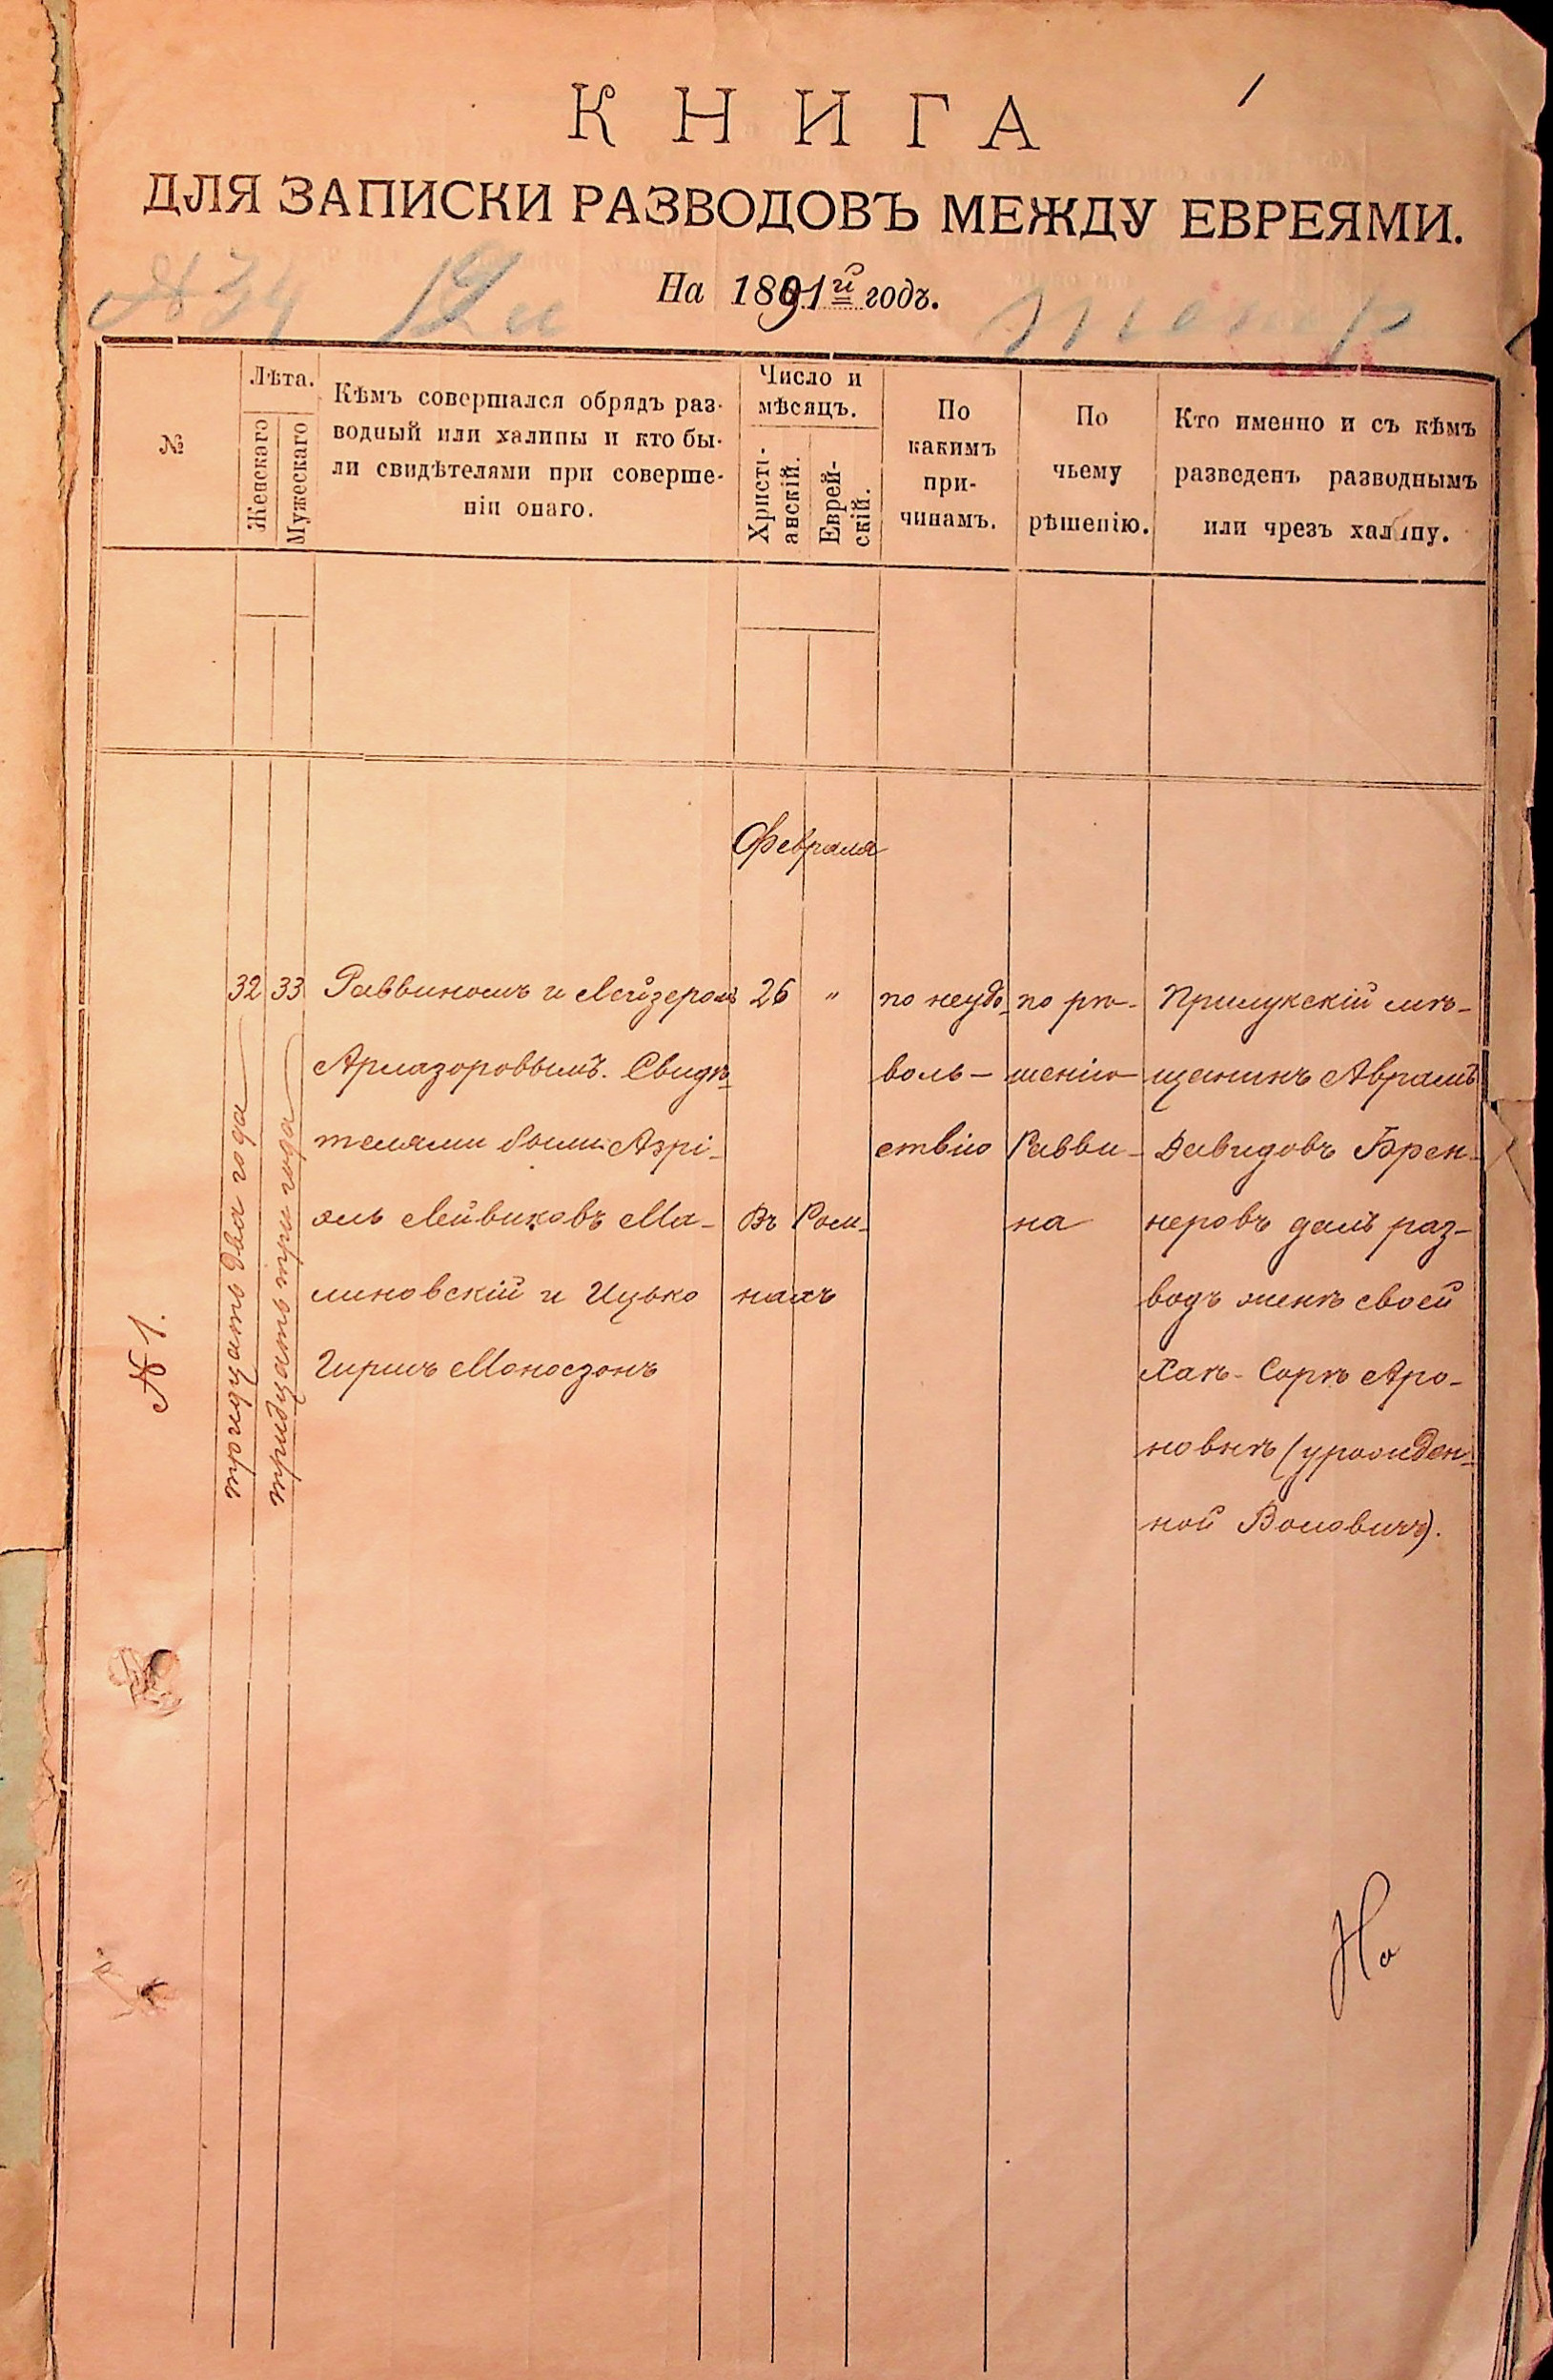 1
КНИГА
ДЛЯ ЗАПИСКИ РАЗВОДОВЪ МЕЖДУ ЕВРЕЯМИ.
На 1891й годъ.
№
Лѣта.
Женскаго
Мужескаго
Кѣмъ совершался обрядъ раз-
водный или халицы и кто бы-
ли свидѣтелями при соверше-
ніи онаго.
Число и
мѣсяцъ.
Христі-
анскій.
Еврей-
скій.
По
какимъ
при-
чинамъ.
По
чьему
рѣшенію.
Кто именно и съ кѣмъ
разведенъ разводнымъ
или чрезъ халицу.
Февраля
№ 1.
32
тридцать два года
33
тридцать три года
Раввиномъ и Лейзеромъ
Армазоровымъ. Свидѣ-
телями были: Азрі-
яль Лейвиковъ Ма-
линовскій и Ицько
Гиршъ Моносзонъ
26 "
Въ Ром-
нахъ
по неудо-
воль-
ствію
по рѣ-
шенію
Равви-
на
Прилукскій мѣ-
щанинъ Аврамъ
Давидовъ Брен-
неровъ далъ раз-
водъ женѣ своей
Хаѣ-Сорѣ Аро-
новнѣ (урожден-
ной Воловичъ).
На